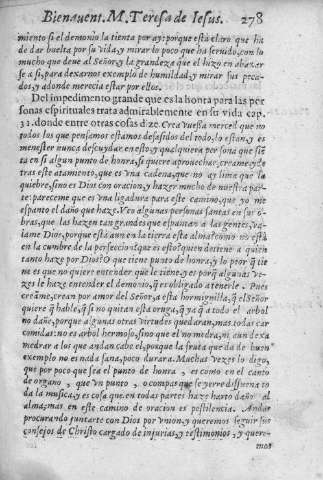 Bienauent. M. Teresa de Iesus. 278
miento si el demonio la tienta por ay: porque està claro que ha
de dar buelta por su vida, y mirar lo poco que ha seruido, con lo
mucho que deue al Señor, y la grandeza que el hizo en abaxar
se a si, para dexarnos exemplo de humildad, y mirar sus peca-
dos, y adonde merecia estar por ellos.
Del impedimento grande que es la honra para las per
sonas espirituales trata admirablemente en su vida cap.
31. donde entre otras cosas dize. Crea vuessa merced que no
todos los que pensamos estamos desasidos del todo, lo estan, y es
menester nunca descuydar en esto, y qualquiera persona que sien
ta en si algun punto de honra, si quiere aprouechar, creame, y de
tras este atamiento, que es vna cadena, que no ay lima que la
quiebre, sino es Dios con oracion, y hazer mucho de nuestra par-
te: pareceme que es vna ligadura para este camino, que yo me
espanto el daño que haze. Veo algunas personas santas en sus o-
bras, que las hazen tan grandes que espantan a las gentes, va-
lame Dios, porque està aun en la tierra este alma? como no està
en la cumbre de la perfeccion? que es esto? quien detiene a quien
tanto haze por Dios? O que tiene punto de honra, y lo peor q̃ tie
ne es que no quiere entender que le tiene, y es porq̃ algunas ve-
zes le haze entender el demonio, q̃ es obligado a tenerle. Pues
creãme, crean por amor del Señor, a esta hormiguilla, q̃ el Señor
quiere q̃ hable, q̃ si no quitan esta oruga, q̃ ya q̃ a todo el arbol
no dañe, porque algunas otras virtudes quedaran, mas todas car
comidas: no es arbol hermoso, sino que el no medra, ni aun dexa
medrar a los que andan cabe el, porque la fruta que da de buen
exemplo no es nada sana, poco durara. Muchas vezes lo digo,
que por poco que sea el punto de honra, es como en el canto
de organo, que vn punto, o compas que se yerre dissuena to
da la musica, y es cosa que en todas partes haze harto daño al
alma, mas en este camino de oracion es pestilencia. Andas
procurando juntarte con Dios por vnion, y queremos seguir sus
consejos de Christo cargado de injurias, y testimonios, y quere-
mos